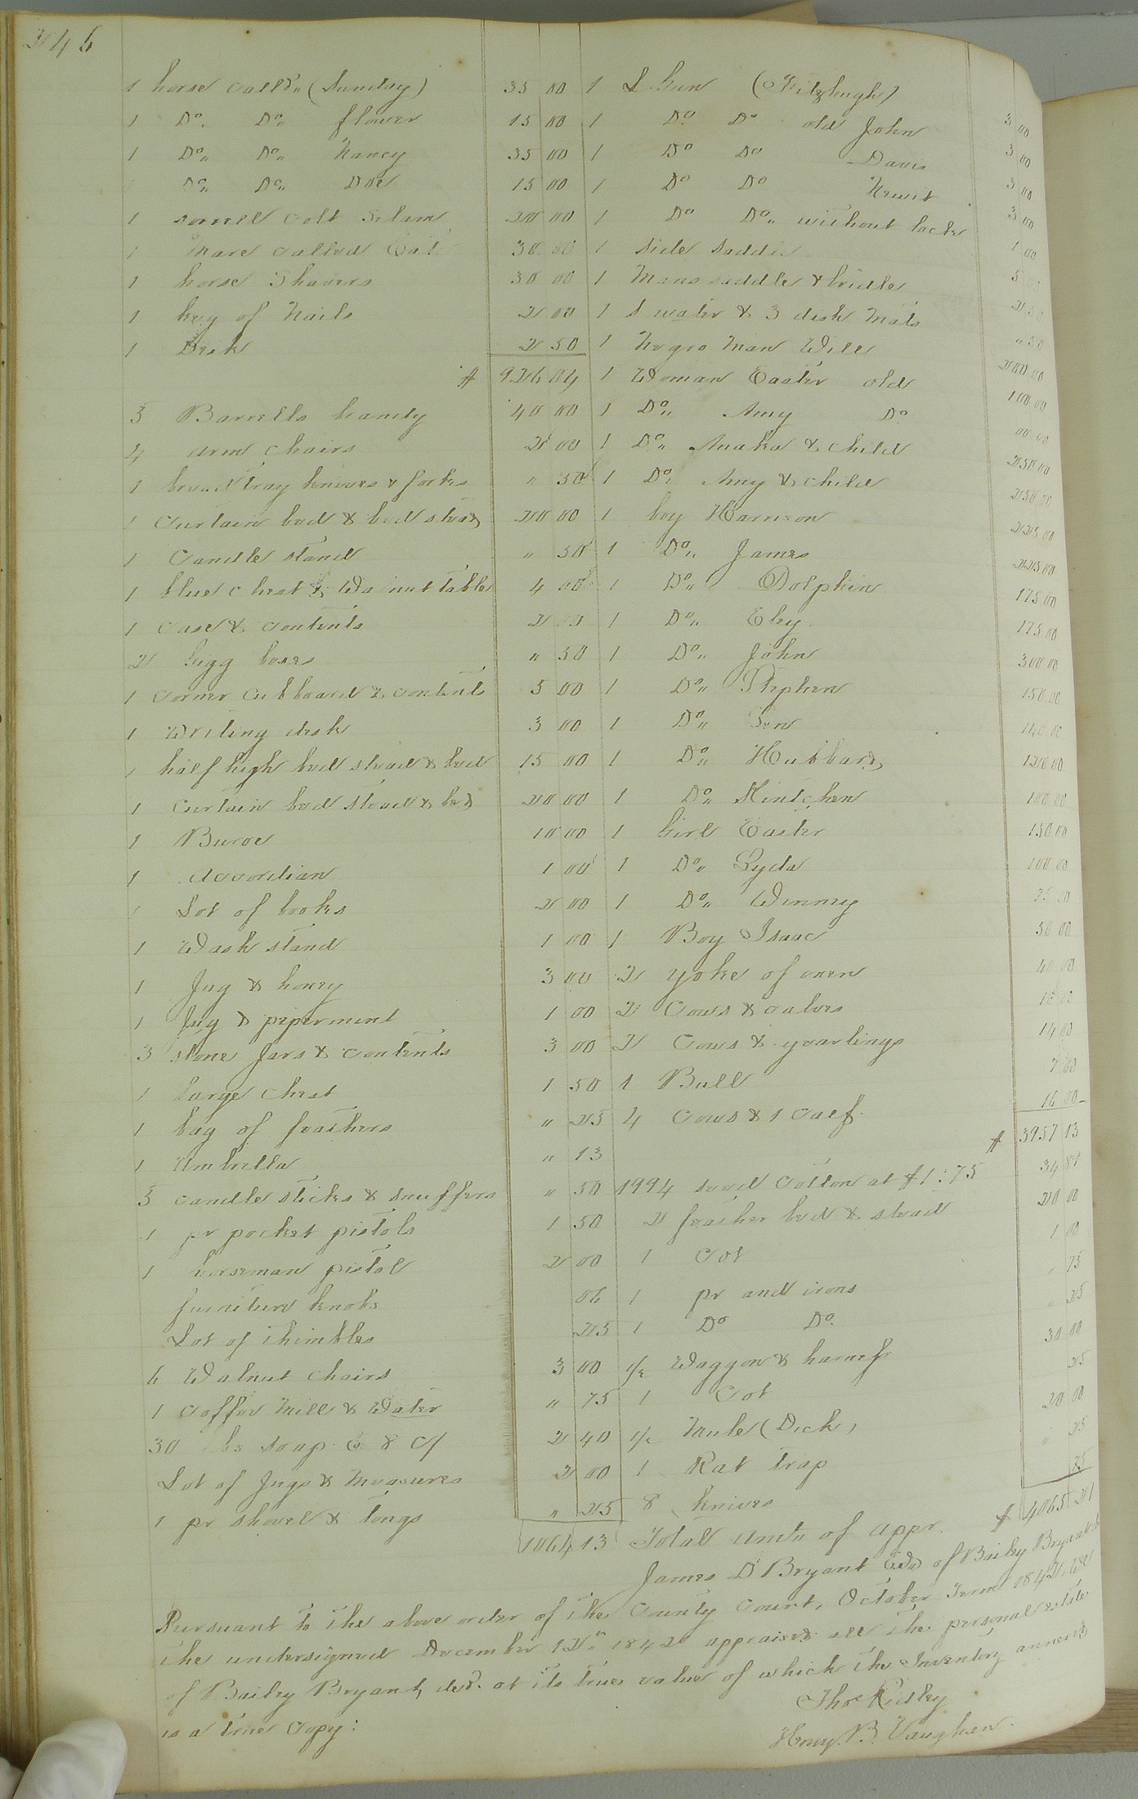 246
1 horse calld (Sunday) 35 00
1 Do. Do. flower 15 00
1 Do. Do. Nancy 35 00
Do. Do. Doe 15 00
1 sorrell colt 20 00
1 Mare called 30 00
1 horse Shavers 30 00
1 keg of Nails 2 00
1 Desk 2 50
$ 926 04
5 Barrells brandy 40 00
4 arm chairs 2 00
1 bread tray knives & forks " 50
1 Curtain bed & bed stead 20 00
1 Candle stand " 50
1 blue chest & Walnut table 4 00
1 case & contents
2 bigg boxes " 50
1 corner cubboard & contents 5 00
1 Writing desk 3 00
1 half high bed stead & bed 15 00
1 Curtain bed stead & bed 20 00
1 Buroe 10 00
1 Accordian 1 00
1 Lot of books 2 00
1 Wash stand 1 00
1 Jug & honey 3 00
1 Jug & peperment 1 00
3 stone Jars & contents 3 00
1 large chest 1 50
1 bag of feathers " 25
1 Umbrella " 13
5 candle sticks & snuffers " 50
1 pr pocket pistols 1 50
1 horseman pistol 2 00
furniture knobs 06
Lot of thimbles 25
6 Walnut chairs 3 00
1 Coffee Mill & Water " 75
30 lbs soap @ 8 c/ 2 40
Lot of Jugs & Measures 2 00
1 pr shovel & tongs " 25
1064 13
1 S. Gun (Fitzhugh) 3 00
1 Do. Do old John 3 00
1 Do Do Davis 3 00
1 Do Do 3 00
1 Do Do. without lock 1 00
1 side saddle
1 Mans saddle & bridle
1 & 3 desk Mats " 50
1 Negro Man Will 200 00
1 Woman Easter old 100 00
1 Do. Amy Do. 00 00
1 Do. Anaka & child 250 00
1 Do. Amy & child 250 00
1 boy Harrison 225 00
1 Do. James 225 00
1 Do. Dolphin 175 00
1 Do. Eley 175 00
1 Do. John 300 00
1 Do. Stephen 150 00
1 Do. 140 00
1 Do. Hubbard 120 00
1 Do. Kintchen 100 00
1 Girl Easter 150 00
1 Do. Lyda 100 00
1 Do. Winney
1 Boy Isaac 50 00
2 yoke of oxen 40 00
2 Cows & calves
2 Cows & yearlings 14 00
1 Bull 7 00
4 Cows & 1 calf 16 00
$ 3957 13
1994 seed Cotton at $1:75 34 89
2 feather bed & stead 20 00
1 Cot 1 00
1 pr and irons 75
1 Do Do 25
1/2 Waggon & harness 30 00
1 Cot 25
1/2 Mule (Dick) 20 00
1 Rat trap 25
8 knives 25
Total Amtn of appr. $ 4065 21
James D Bryant Exd of Bailey Bryant
Pursuant to the above order of the County Court, October Term 1842 We
the undersigned December 12th 1842 appraised all the personal estate
of Bailey Bryant, decd. at its true value of which the Inventory annexed
is a true Copy:
Thos Ridley
Henry. B. Vaughan.